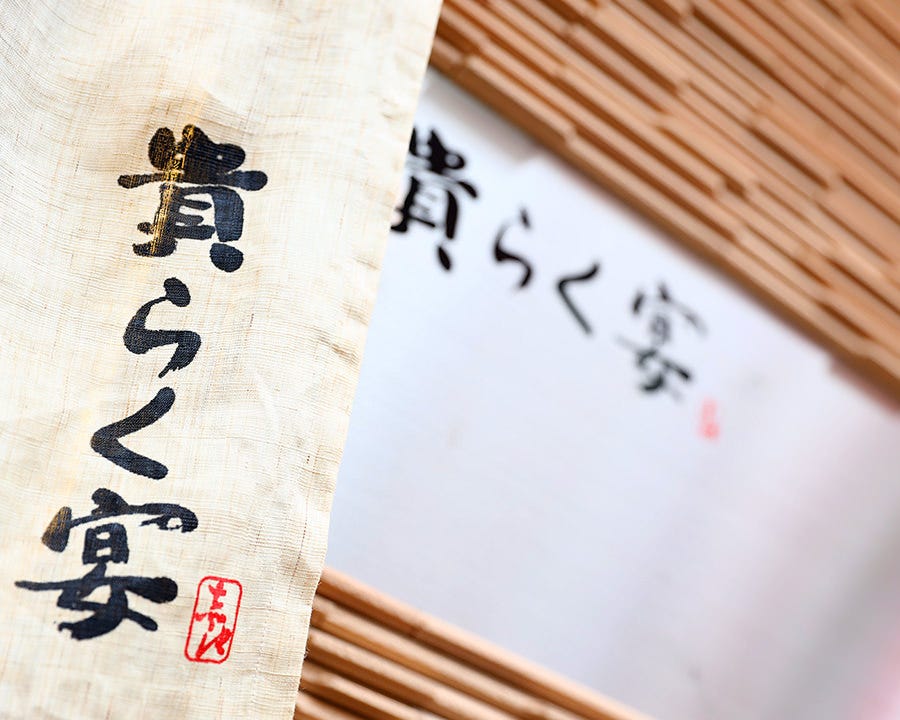 貴らく宴
貴らく宴